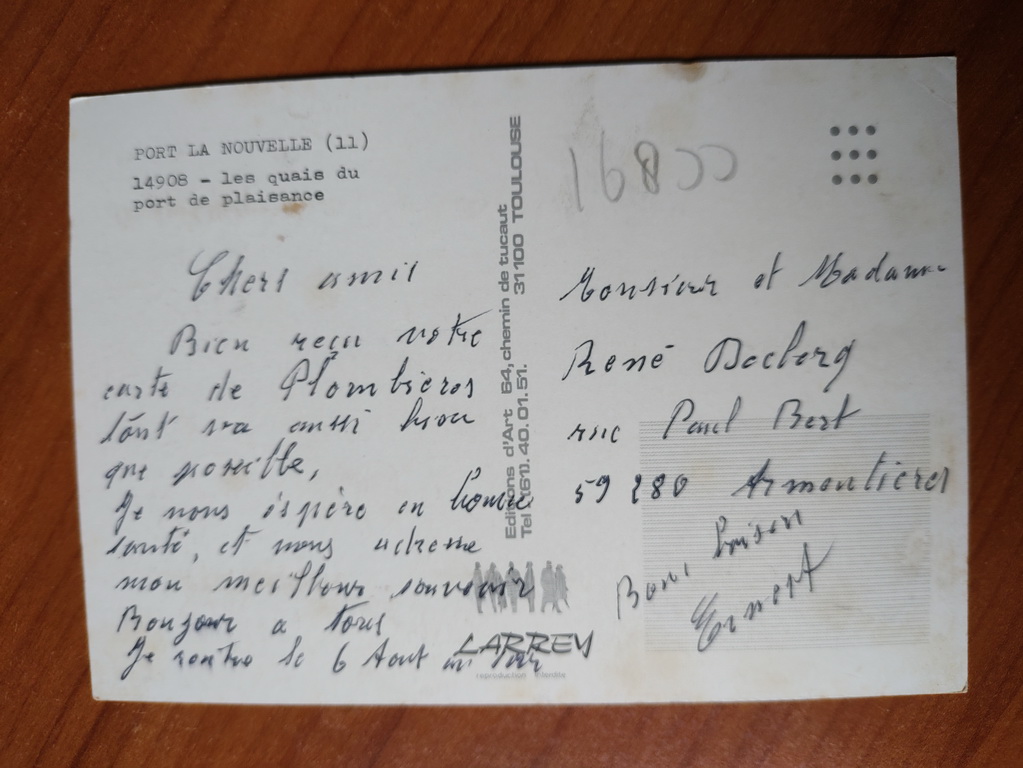 PORT LA NOUVELLE (11)
14908 - les quais du
port de plaisance
Chers amis
Bien reçu votre
carte de Plombières
tout va aussi bien
que possible,
Je vous éspère en bonne
santé, et vous adresse
mon meilleur souvenir
Bonjour a tous
Je rentre le 6 Aout au soir
Editions d'Art 64, chemin de tucaut
Tel (61). 40.01.51. 31100 TOULOUSE
LARREY
reproduction interdite
Monsieur et Madame
René Declerq
rue Paul Bert
59 280 Armentieres
Bons baisers
Ernest